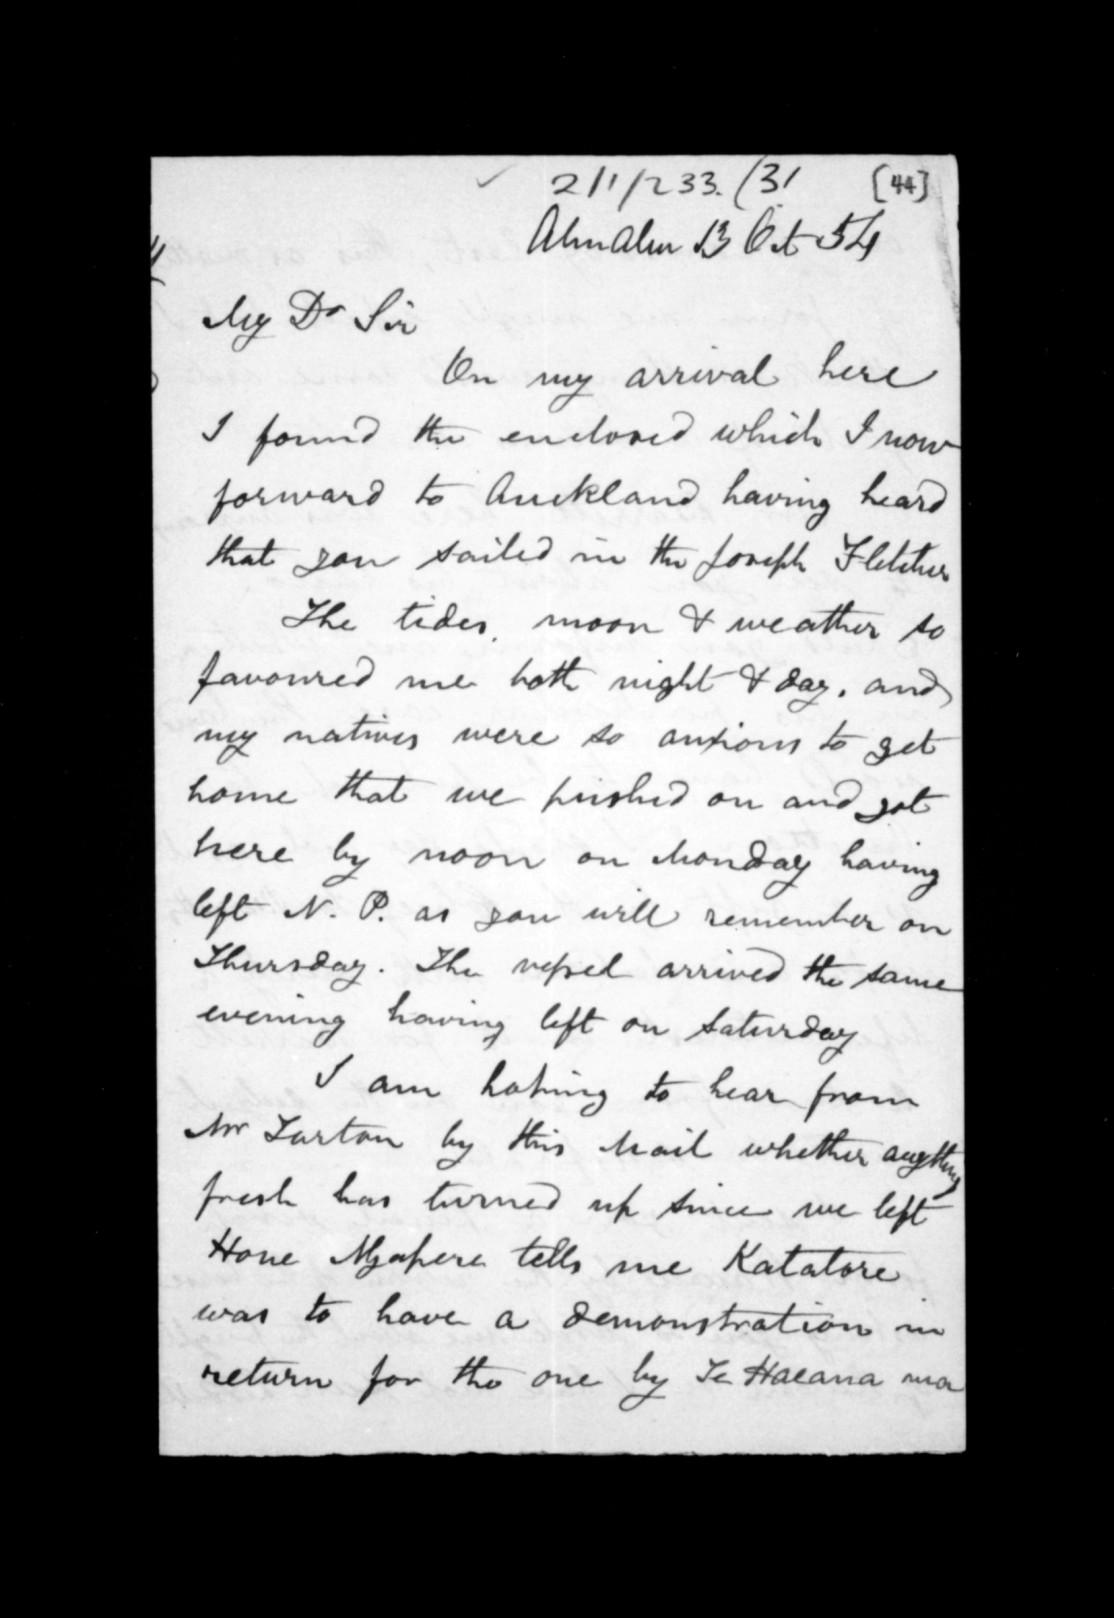 2/1/233. (31 [44]
Ahuahu 13 Oct 54
My Dr Sir
On my arrival here
I found the enclosed which I now
forward to Auckland having heard
that you sailed in the Joseph Fletcher
The tides, moon & weather so
favoured me both night & day, and
my natives were so anxious to get
home that we pushed on and got
here by noon on Monday having
left N. P. as you will remember on
Thursday. The vessel arrived the same
evening having left on Saturday
I am hoping to hear from
Mr Turton by this Mail whether anything
fresh has turned up since we left
Hone Ngapere tells me Katatore
was to have a demonstration in
return for the one by Te Haeana ma